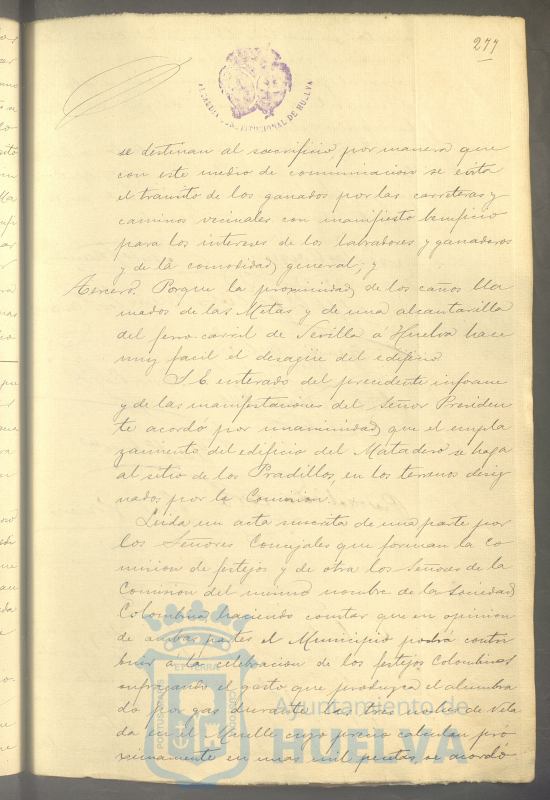 277
ALCALDIA CONSTITUCIONAL DE HUELVA
se destinan al sacrificio por manera que
con este medio de comunicacion se evita
el transito de los ganados por las carreteras y
caminos vecinales con manifiesto beneficio
para los intereses de los labradores y ganaderos
y de la comodidad general; y
Tercero. Porque la proximidad de los caños lla
mados de las Metas y de una alcantarilla
del ferro-carril de Sevilla á Huelva hace
muy facil el desagüe del edificio
S.E. enterado del precedente informe
y de las manifestaciones del Señor Presiden
te acordó por unanimidad que el empla
zamiento del edificio del Matadero se haga
al sitio de los Pradillos, en los terrenos desig
nados por la Comision.
Leida un acta suscrita de una parte por
los Señores Concejales que forman la Co
mision de festejos y de otra los Señores de la
Comision del mismo nombre de la Sociedad
Colombina haciendo constar que en opinion
de ambas partes el Municipio podrá contri
buir á la celebracion de los festejos Colombinos
sufragando el gasto que produzca el alumbra
do por gas durante las tres noches de Vela
da en el Muelle cuyo precio calculan pró
ximamente en unas mil pesetas, se acordó
PORTUS MARIS
ET TERRAE
CUSTODIA
Ayuntamiento de
HUELVA